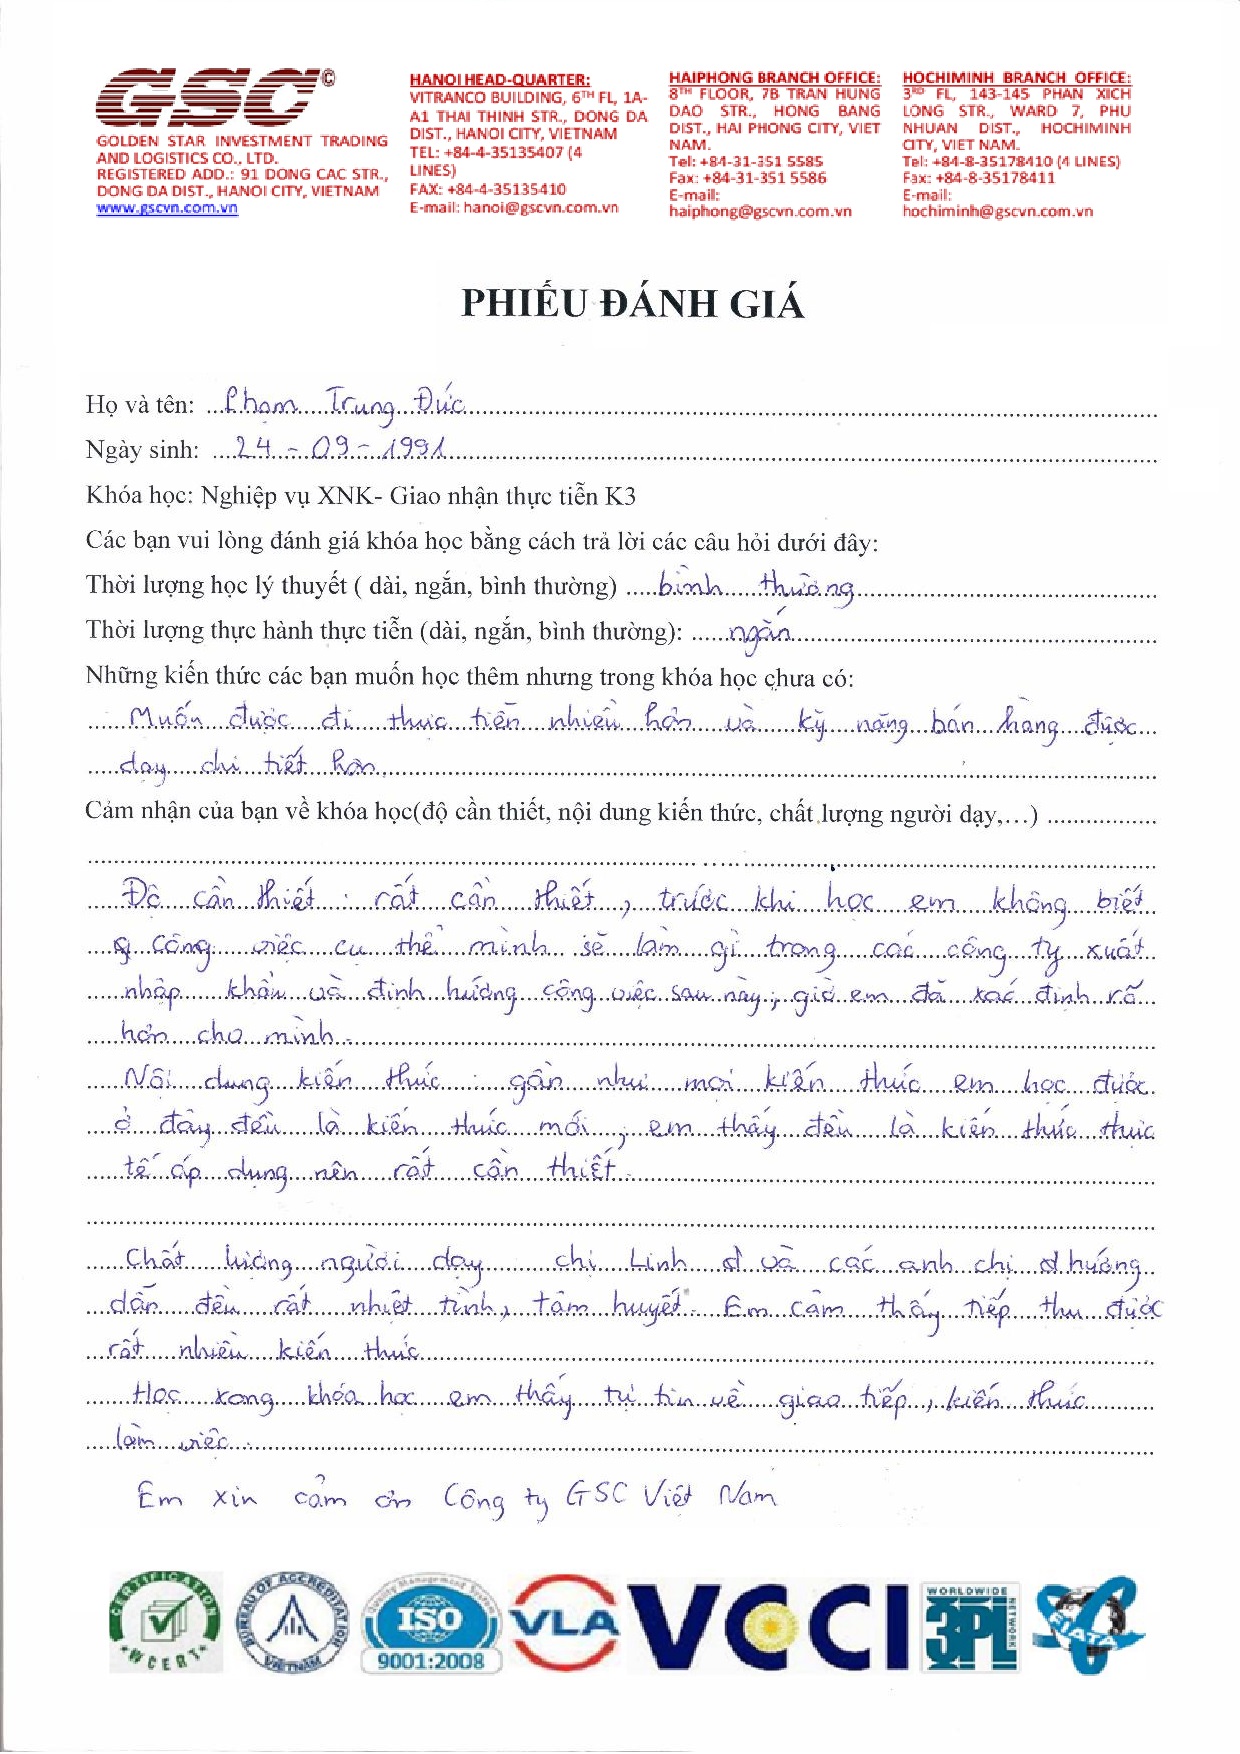 GSC©
GOLDEN STAR INVESTMENT TRADING
AND LOGISTICS CO., LTD.
REGISTERED ADD.: 91 DONG CAC STR.,
DONG DA DIST., HANOI CITY, VIETNAM
www.gscvn.com.vn
HANOI HEAD-QUARTER:
VITRANCO BUILDING, 6TH FL, 1A-
A1 THAI THINH STR., DONG DA
DIST., HANOI CITY, VIETNAM
TEL: +84-4-35135407 (4
LINES)
FAX: +84-4-35135410
E-mail: hanoi@gscvn.com.vn
HAIPHONG BRANCH OFFICE:
8TH FLOOR, 7B TRAN HUNG
DAO STR., HONG BANG
DIST., HAI PHONG CITY, VIET
NAM.
Tel: +84-31-351 5585
Fax: +84-31-351 5586
E-mail:
haiphong@gscvn.com.vn
HOCHIMINH BRANCH OFFICE:
3RD FL, 143-145 PHAN XICH
LONG STR., WARD 7, PHU
NHUAN DIST., HOCHIMINH
CITY, VIET NAM.
Tel: +84-8-35178410 (4 LINES)
Fax: +84-8-35178411
E-mail:
hochiminh@gscvn.com.vn
PHIẾU ĐÁNH GIÁ
Họ và tên: Phạm Trung Đức
Ngày sinh: 24 - 09 - 1991
Khóa học: Nghiệp vụ XNK- Giao nhận thực tiễn K3
Các bạn vui lòng đánh giá khóa học bằng cách trả lời các câu hỏi dưới đây:
Thời lượng học lý thuyết ( dài, ngắn, bình thường) bình thường
Thời lượng thực hành thực tiễn (dài, ngắn, bình thường): ngắn
Những kiến thức các bạn muốn học thêm nhưng trong khóa học chưa có:
Muốn được đi thực tiễn nhiều hơn và kỹ năng bán hàng được
dạy chi tiết hơn
Cảm nhận của bạn về khóa học(độ cần thiết, nội dung kiến thức, chất lượng người dạy,…)
Độ cần thiết : rất cần thiết, trước khi học em không biết
công việc cụ thể mình sẽ làm gì trong các công ty xuất
nhập khẩu và định hướng công việc sau này, giờ em đã xác định rõ
hơn cho mình.
Nội dung kiến thức : gần như mọi kiến thức em học được
ở đây đều là kiến thức mới, em thấy đều là kiến thức thực
tế áp dụng nên rất cần thiết.
Chất lượng người dạy chị Linh và các anh chị hướng
dẫn đều rất nhiệt tình, tâm huyết. Em cảm thấy tiếp thu được
rất nhiều kiến thức
Học xong khóa học em thấy tự tin về giao tiếp, kiến thức
làm việc.
Em xin cảm ơn Công ty GSC Việt Nam
CERTIFICATION
WCERT
BUREAU OF ACCREDITATION
VIETNAM
Quality Management System
ISO
9001:2008
VLA
VCCI
WORLDWIDE
3PL
NETWORK
FIATA